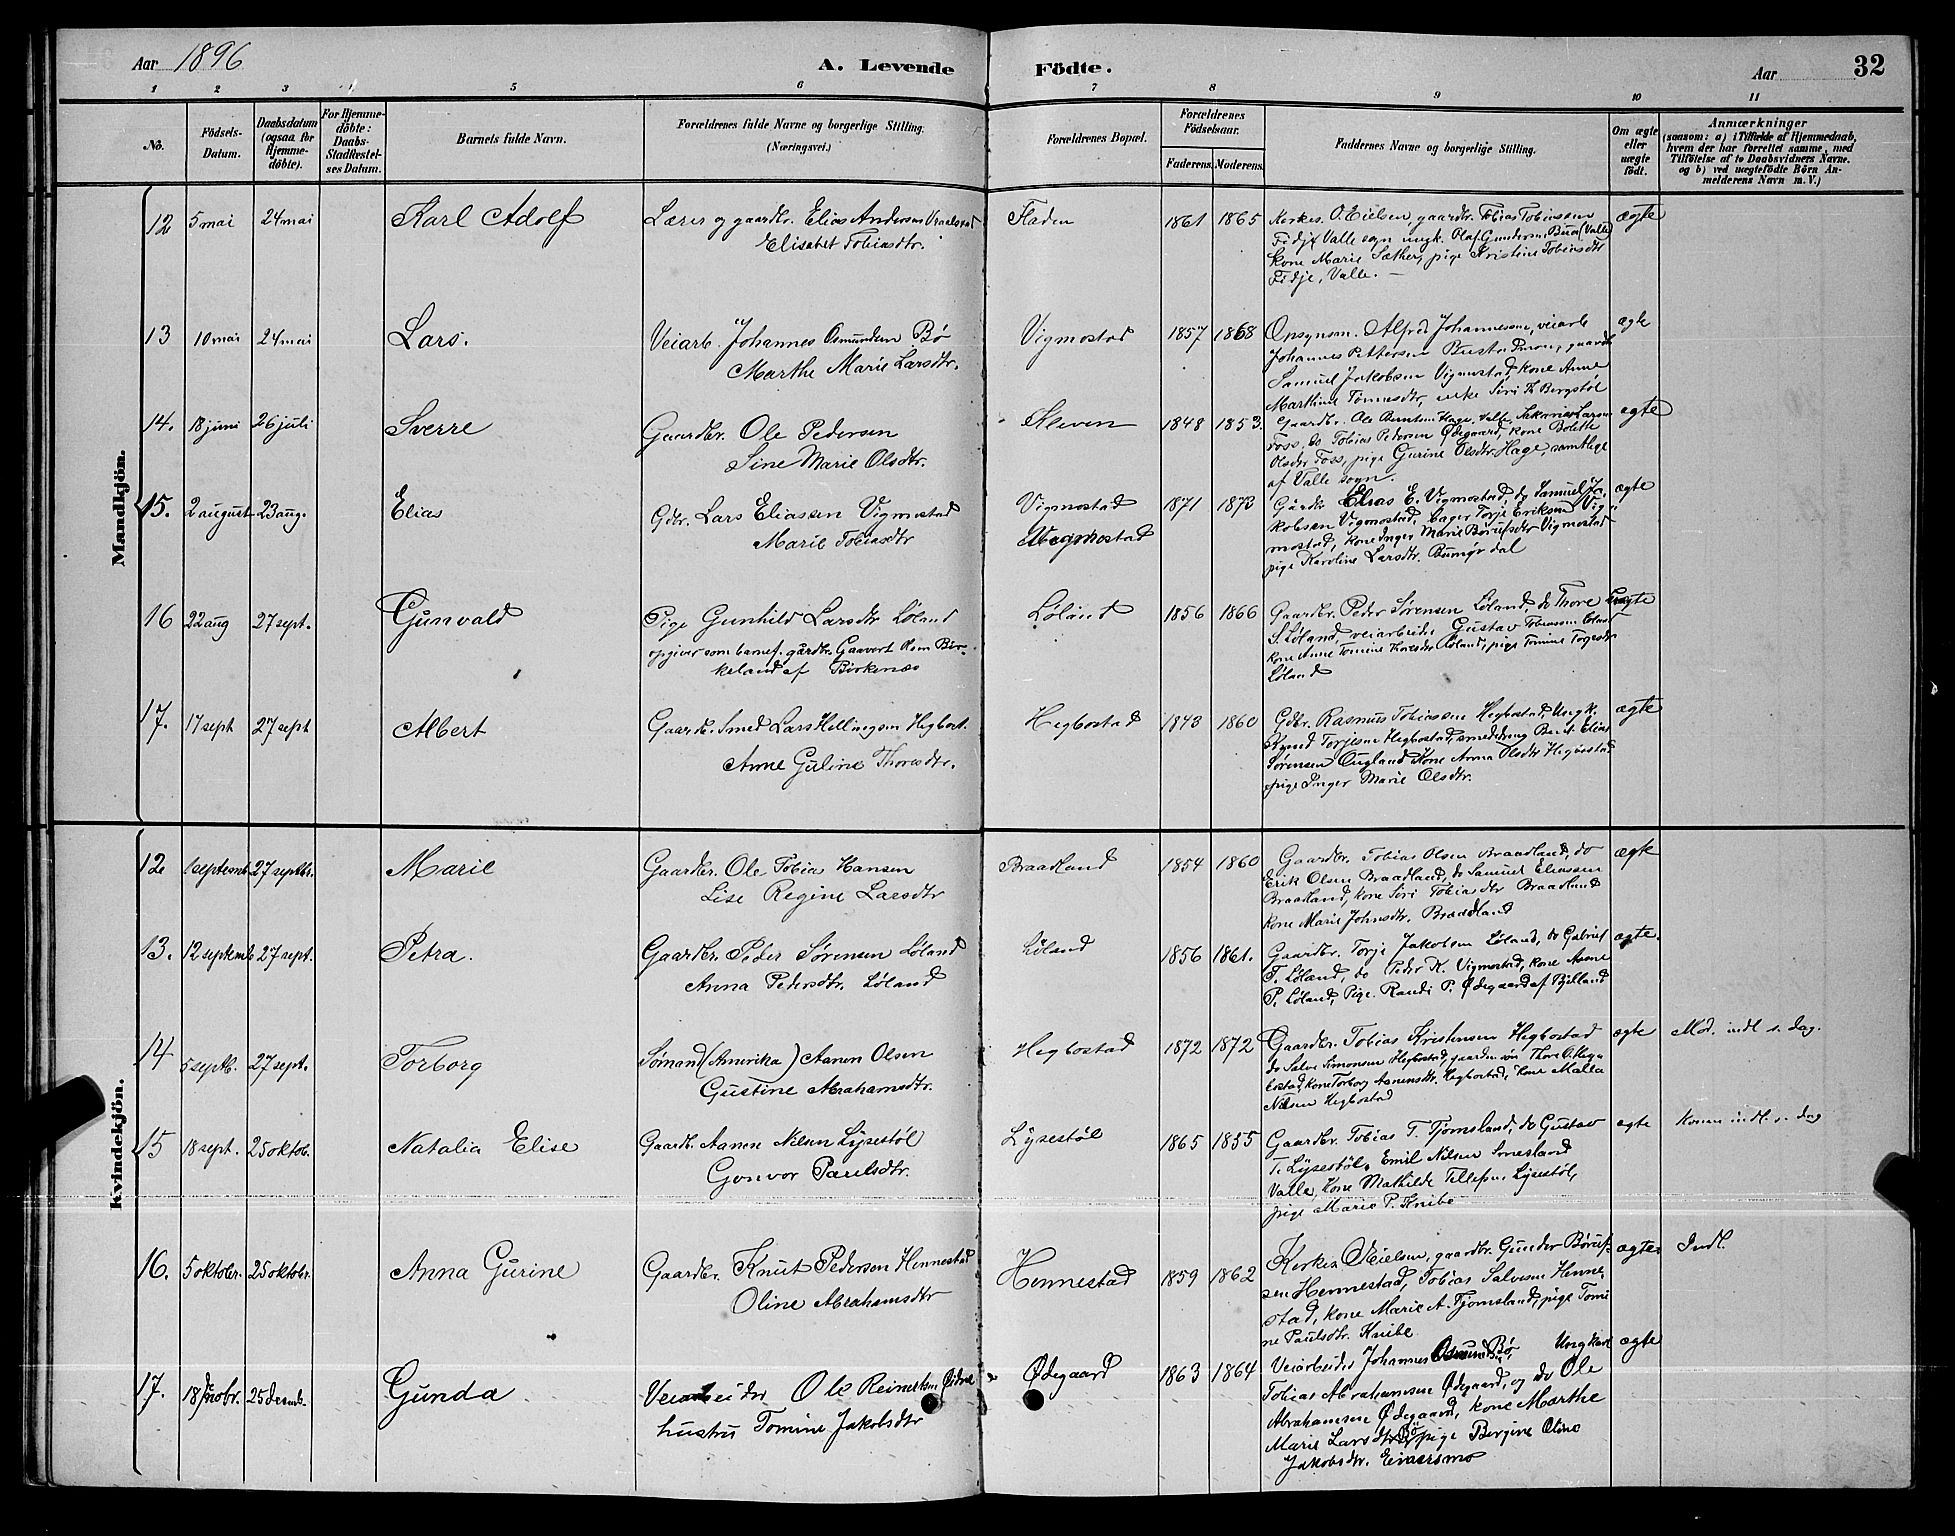 Aar 1896
A. Levende Födte.
Aar
32
1 2 3 4 5 6 7 8 9 10 11
No.
Födsels-
Datum.
Daabsdatum
(ogsaa for
Hjemme-
döbte).
For Hjemme-
döbte:
Daabs-
Stadfæstel-
ses Datum.
Barnets fulde Navn.
Forældrenes fulde Navne og borgerlige Stilling.
(Næringsvei.)
Forældrenes Bopæl.
Forældrenes
Födselsaar.
Faderens. Moderens.
Faddernes Navne og borgerlige Stilling.
Om ægte
eller
uægte
födt.
Anmærkninger
(saasom: a) i Tilfælde af Hjemmedaab,
hvem der har forrettet samme, med
Tilföielse af to Daabsvidners Navne.
og b) ved uægtefödte Börn An-
melderens Navn m. V.)
Mandkjön.
12 5 mai 24 mai Karl Adolf
Lærer og gaardbr. Elias Andersen
Elisabet Tobiasdtr.
Fladen 1861 1865
Kirkes. O. Eielsen, gaardbr. Tobias Tobiassen
Fidje Valle sogn ungk. Olaf Gundersen Buea (Valle)
kone Marie Sæther, pige Kristine Tobiasdtr
Fidje, Valle. —
ægte
13 10 mai 24 mai Lars.
Veiarb. Johannes Osmundsen Bø
Marthe Marie Larsdtr.
Vigmostad 1857 1868
Opsynsm. Alfred Johannessen, veiarb
Johannes Pettersen gaardb
Samuel Jakobsen Vigmostad, kone Anne
Marthine Tønnesdtr, enke Siri Bergstøl
ægte
14. 18 juni 26 juli Sverre
Gaardbr. Ole Pedersen
Sine Marie Olsdtr.
Kleven 1848 1853.
Gaardbr. Ole Berntsen Hage, Valle, Sakarias Larsen
Foss, do Tobias Pedersen Ødegaard, kone Bolette
Olsdtr Foss, pige Gurine Olsdtr. Hage, samtlige
af Valle sogn.
ægte
15. 2 august 23 aug. Elias
Gdbr. Lars Eliassen Vigmostad
Marie Tobiasdtr
Vigmostad
Vigmostad
1871 1873
Gårdbr Elias E. Vigmostad, do Samuel Ja-
kobsen Vigmostad, bager Torje Eriksen Vig-
mostad, kone Inger Marie Børufsdtr Vigmostad
pige Karoline Larsdtr.
ægte
16 22 aug 27 sept. Gunvald
Pige Gunhild Larsdtr Løland
opgiver som barnef. gårdbr. Gauvert Olsen Bir-
keland af Birkenæs
Løland 1856 1866
Gaardbr. Peder Sørensen Løland, do Thore
S. Løland, veiarbeider Gustav Tobiassen
kone Anne Tomine Løland, pige Tomine Torjesdtr
Løland
uægte
17. 17 sept 27 sept Albert
Gaardbr. Smed Lars Hellingsen Hegbost.
Anne Guline Thoresdtr.
Hegbostad 1843 1860
Gdbr. Rasmus Tobiassen Hegbostad, Ungk.
Torjesen Hegbostad, smededreng Bernt Elias
Sørensen Augland, Kone Anna Olsdtr Hegbostad
pige Inger Marie Olsdtr.
ægte
Kvindekjön.
12 1 septemb 27 septbr. Marie
Gaardbr. Ole Tobias Hansen
Lise Regine Larsdtr
Braadland 1854 1860
Gaardbr. Tobias Olsen Braadland, do
Erik Olsen Braadland, do Samuel Eliassen
Braadland, kone Siri Tobiasdtr Braadland
kone Marie Johnsdtr. Braadland
ægte
13. 12 septemb 27 sept. Petra.
Gaardbr. Peder Sørensen Løland
Anna Pedersdtr. Løland
Løland 1856 1861.
Gaardbr. Torje Jakobsen Løland, do Gabriel
T. Løland, do Peder K. Vigmostad, kone Anne
P. Løland, Pige. Randi P. Ødegaard af Bjelland
ægte.
14 5 septb. 27 sept. Torborg
Sømand (Amerika) Aanen Olsen
Gustine Abrahamsdtr.
Hegbostad 1872 1872
Gaardbr. Tobias Kristensen Hegbostad
do Salve Simonsen Hegbostad, gaardm. søn Thore O. Heg-
bostad, kone Torborg Aanensdtr. Hegbostad, kone Malla
Nilsen Hegbostad
ægte Mod. indl s. dag.
15 18 sept. 25 oktob. Natalia Elise
Gaardb. Aanen Nilsen Lysestøl
Gonvor Paulsdtr.
Lysestøl 1865 1855
Gaardbr. Tobias T. Tjomsland, do Gustav
T. Lysestøl, Emil Nilsen
Valle, Kone Mathilde Lysestøl,
pige Marie P. Knibe
ægte Konen indl. s. dag
16. 5 oktober. 25 oktobr. Anna Gurine
Gaardbr. Knut Pedersen Hennestad
Oline Abrahamsdtr
Hennestad 1859 1862
Kirkes. O. Eielsen, gaardbr. Gunder Børuf-
sen Hennestad, Tobias Salvesen Henne-
stad, kone Marie A. Tjomsland, pige Tomi
ne Paulsdtr. Knibe
ægte Indl.
17. 18 novbr. 25 decemb. Gunda
Veiarbeider Ole Reinertsen
hustru Tomine Jakobsdtr
Ødegaard 1863 1864
Veiarbeider Johannes Osmunds. Bø, Ungkarl
Tobias Abrahamsen Ødegaard, og do Ole
Abrahamsen Ødegaard, kone Marthe
Marie Larsdtr Bø, pige Bergine Oline
Jakobsdtr. Eivaersmo
ægte